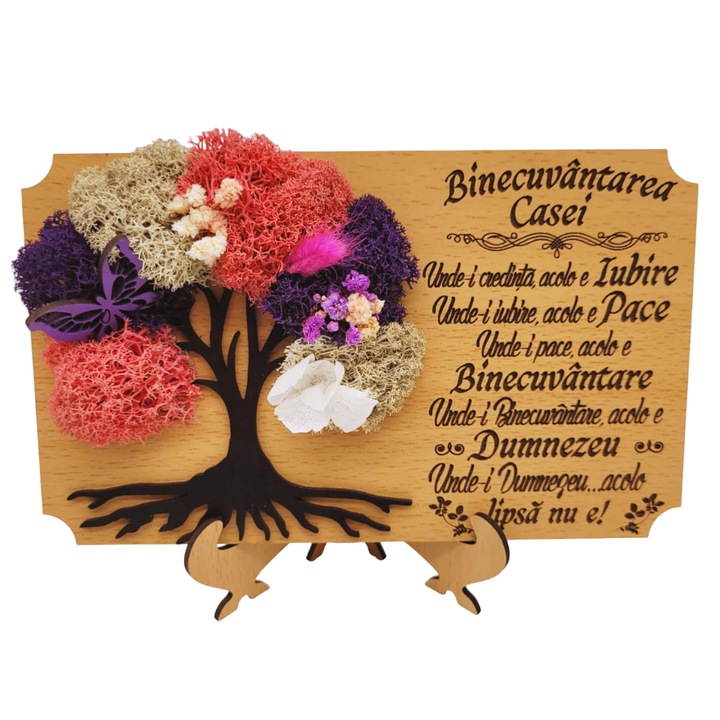 Binecuvântarea
Casei
Unde-i credință, acolo e Iubire
Unde-i iubire, acolo e Pace
Unde-i pace, acolo e
Binecuvântare
Unde-i Binecuvântare, acolo e
Dumnezeu
Unde-i Dumnezeu...acolo
lipsă nu e!